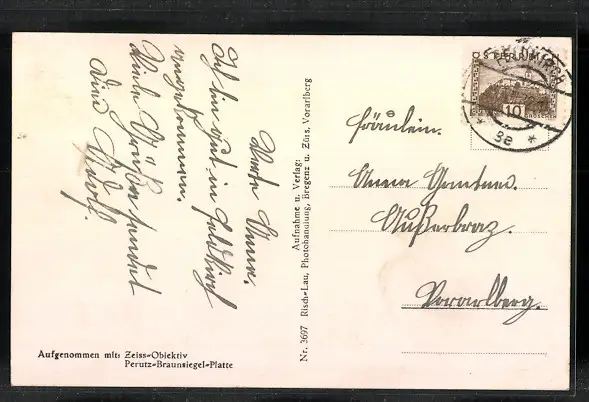 Werte Anna.
Ich bin gut in Feldkirch
angekommen.
Viele Grüße sendet
Dir Adolf.
Aufgenommen mit: Zeiss-Objektiv
Perutz-Braunsiegel-Platte
Nr. 3697 Risch-Lau, Photohandlung, Bregenz u. Zürs, Vorarlberg
Aufnahme u. Verlag:
ÖSTERREICH
10
GROSCHEN
* 3e *
Fräulein.
Anna
Außerbraz.
Vorarlberg.